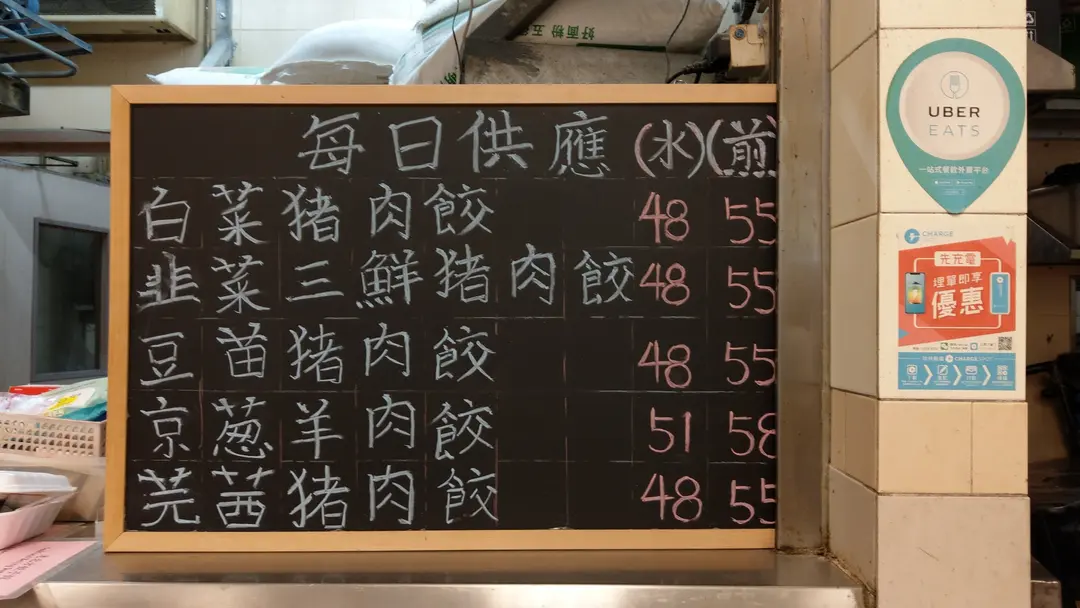 好面粉
每日供應 (水) (煎
白菜猪肉餃 48 55
韮菜三鮮猪肉餃 48 55
豆苗猪肉餃 48 55
京葱羊肉餃 51 58
芫茜猪肉餃 48 55
UBER
EATS
一站式餐點外賣平台
CHARGE
先充電
埋單即享
優惠